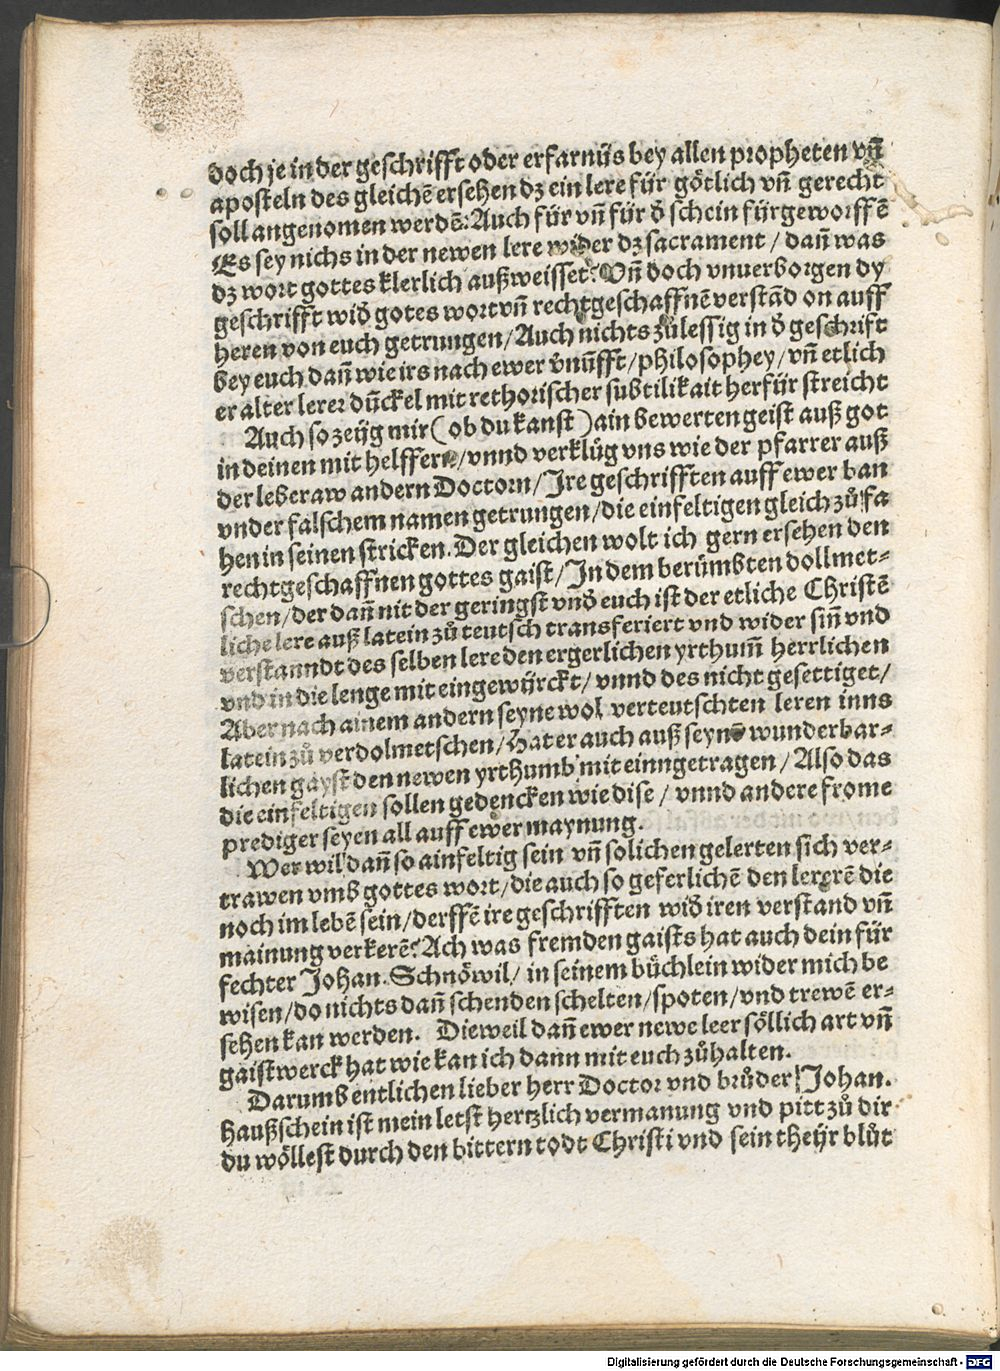 doch je in der geschrifft oder erfarnüs bey allen propheten vñ
aposteln des gleichē ersehen dz ein lere für götlich vñ gerecht
soll angenomen werdē. Auch für vñ für d̕ schein fürgeworffē
Es sey nichs in der newen lere wider dz sacrament / dañ was
dz wort gottes klerlich außweisset. Vñ doch vnuerborgen dy
geschrifft wid̕ gotes wort vñ rechtgeschaffnē verstād on auff
heren von euch getrungen / Auch nichts zůlessig in d̕ geschrift
bey euch dañ wie irs nach ewer v̕nūfft / philosophey / vñ etlich
er alter lerer dūckel mit rethorischer subtilikait herfür streicht
Auch so zeijg mir ( ob du kanst ) ain bewerten geist auß got
in deinen mit helffern / vnnd verklůg vns wie der pfarrer auß
der leberaw andern Doctorn / Ire geschrifften auff ewer ban
vnder falschem namen getrungen / die einfeltigen gleich zů fa
hen in seinen stricken. Der gleichen wolt ich gern ersehen den
rechtgeschaffnen gottes gaist / In dem berümbten dollmet-
schen / der dañ nit der geringst vnd̕ euch ist der etliche Christē
liche lere auß latein zů teutsch transferiert vnd wider siñ vnd
verstanndt des selben lere den ergerlichen yrthum̃ herrlichen
vnd in die lenge mit eingewijrckt / vnnd des nicht gesettiget /
Aber nach ainem andern seyne wol verteutschten leren inns
latein zů verdolmetschen / Hat er auch auß seynē wunderbar-
lichen gayst den newen yrthumb mit einngetragen / Also das
die einfeltigen sollen gedencken wie dise / vnnd andere frome
prediger seyen all auff ewer maynung.
Wer wil dañ so ainfeltig sein vñ solichen gelerten sich ver-
trawen vmb gottes wort / die auch so geferlichē den lererē die
noch im lebē sein / derffē ire geschrifften wid̕ iren verstand vñ
mainung verkerē? Ach was fremden gaists hat auch dein für
fechter Johan. Schnöwil / in seinem büchlein wider mich be
wisen / do nichts dañ schenden schelten / spoten / vnd trewē er-
sehen kan werden. Dieweil dañ ewer newe leer söllich art vñ
gaistwerck hat wie kan ich dann mit euch zůhalten.
Darumb entlichen lieber herr Doctor vnd brůder Johan.
Haußschein ist mein letst hertzlich vermanung vnd pitt zů dir
du wöllest durch den bittern todt Christi vnd sein theijr blůt
Digitalisierung gefördert durch die Deutsche Forschungsgemeinschaft - DFG